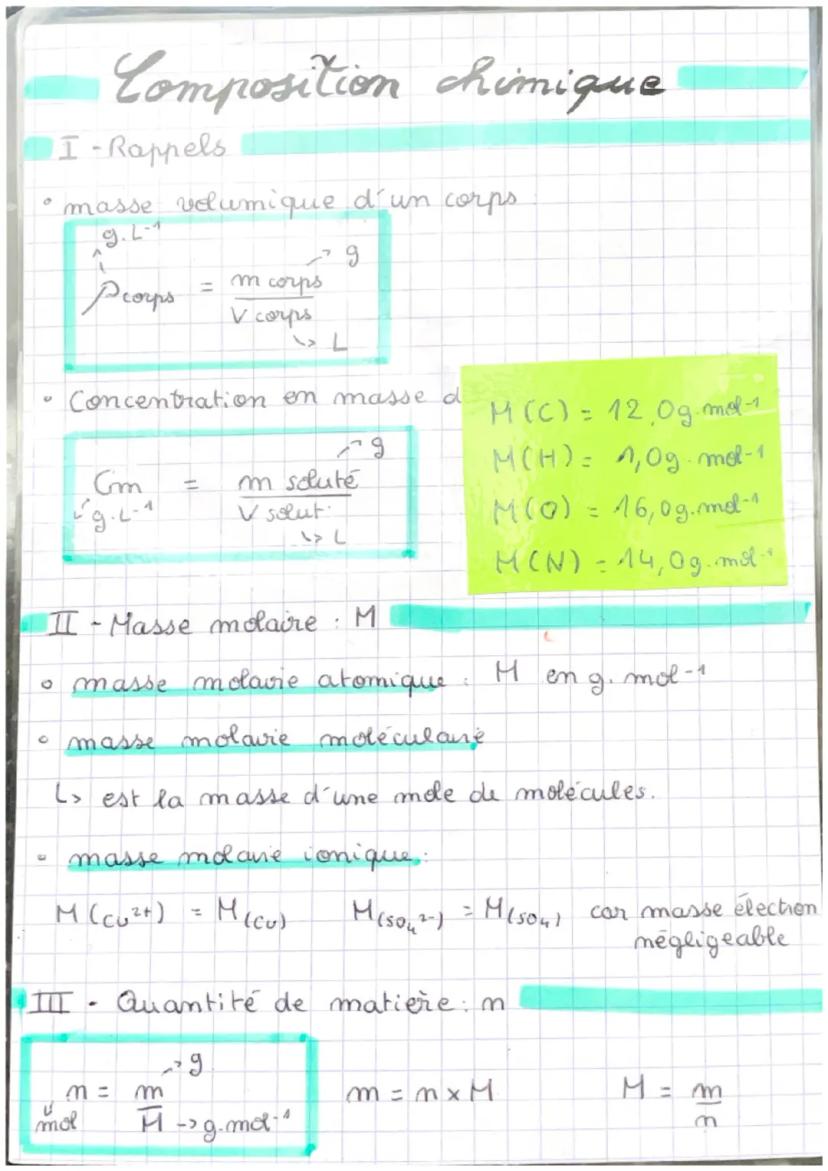 Composition chimique
I - Rappels
• masse volumique d'un corps :
g.L-1
ρcorps = m corps / V corps
→ g
↳ L
• Concentration en masse d
Cm = m soluté / V solut.
→ g
g.L-1
↳ L
M(C) = 12,0g.mol-1
M(H) = 1,0g.mol-1
M(O) = 16,0g.mol-1
M(N) = 14,0g.mol-1
II - Masse molaire : M
• masse molaire atomique : M en g.mol-1
• masse molaire moléculaire
↳ est la masse d'une mole de molécules.
• masse molaire ionique :
M(Cu2+) = M(Cu) M(SO4 2-) = M(SO4) car masse électron
négligeable
III - Quantité de matière : n
n = m / M
→ g
mol
→ g.mol-1
m = n x M
M = m / n